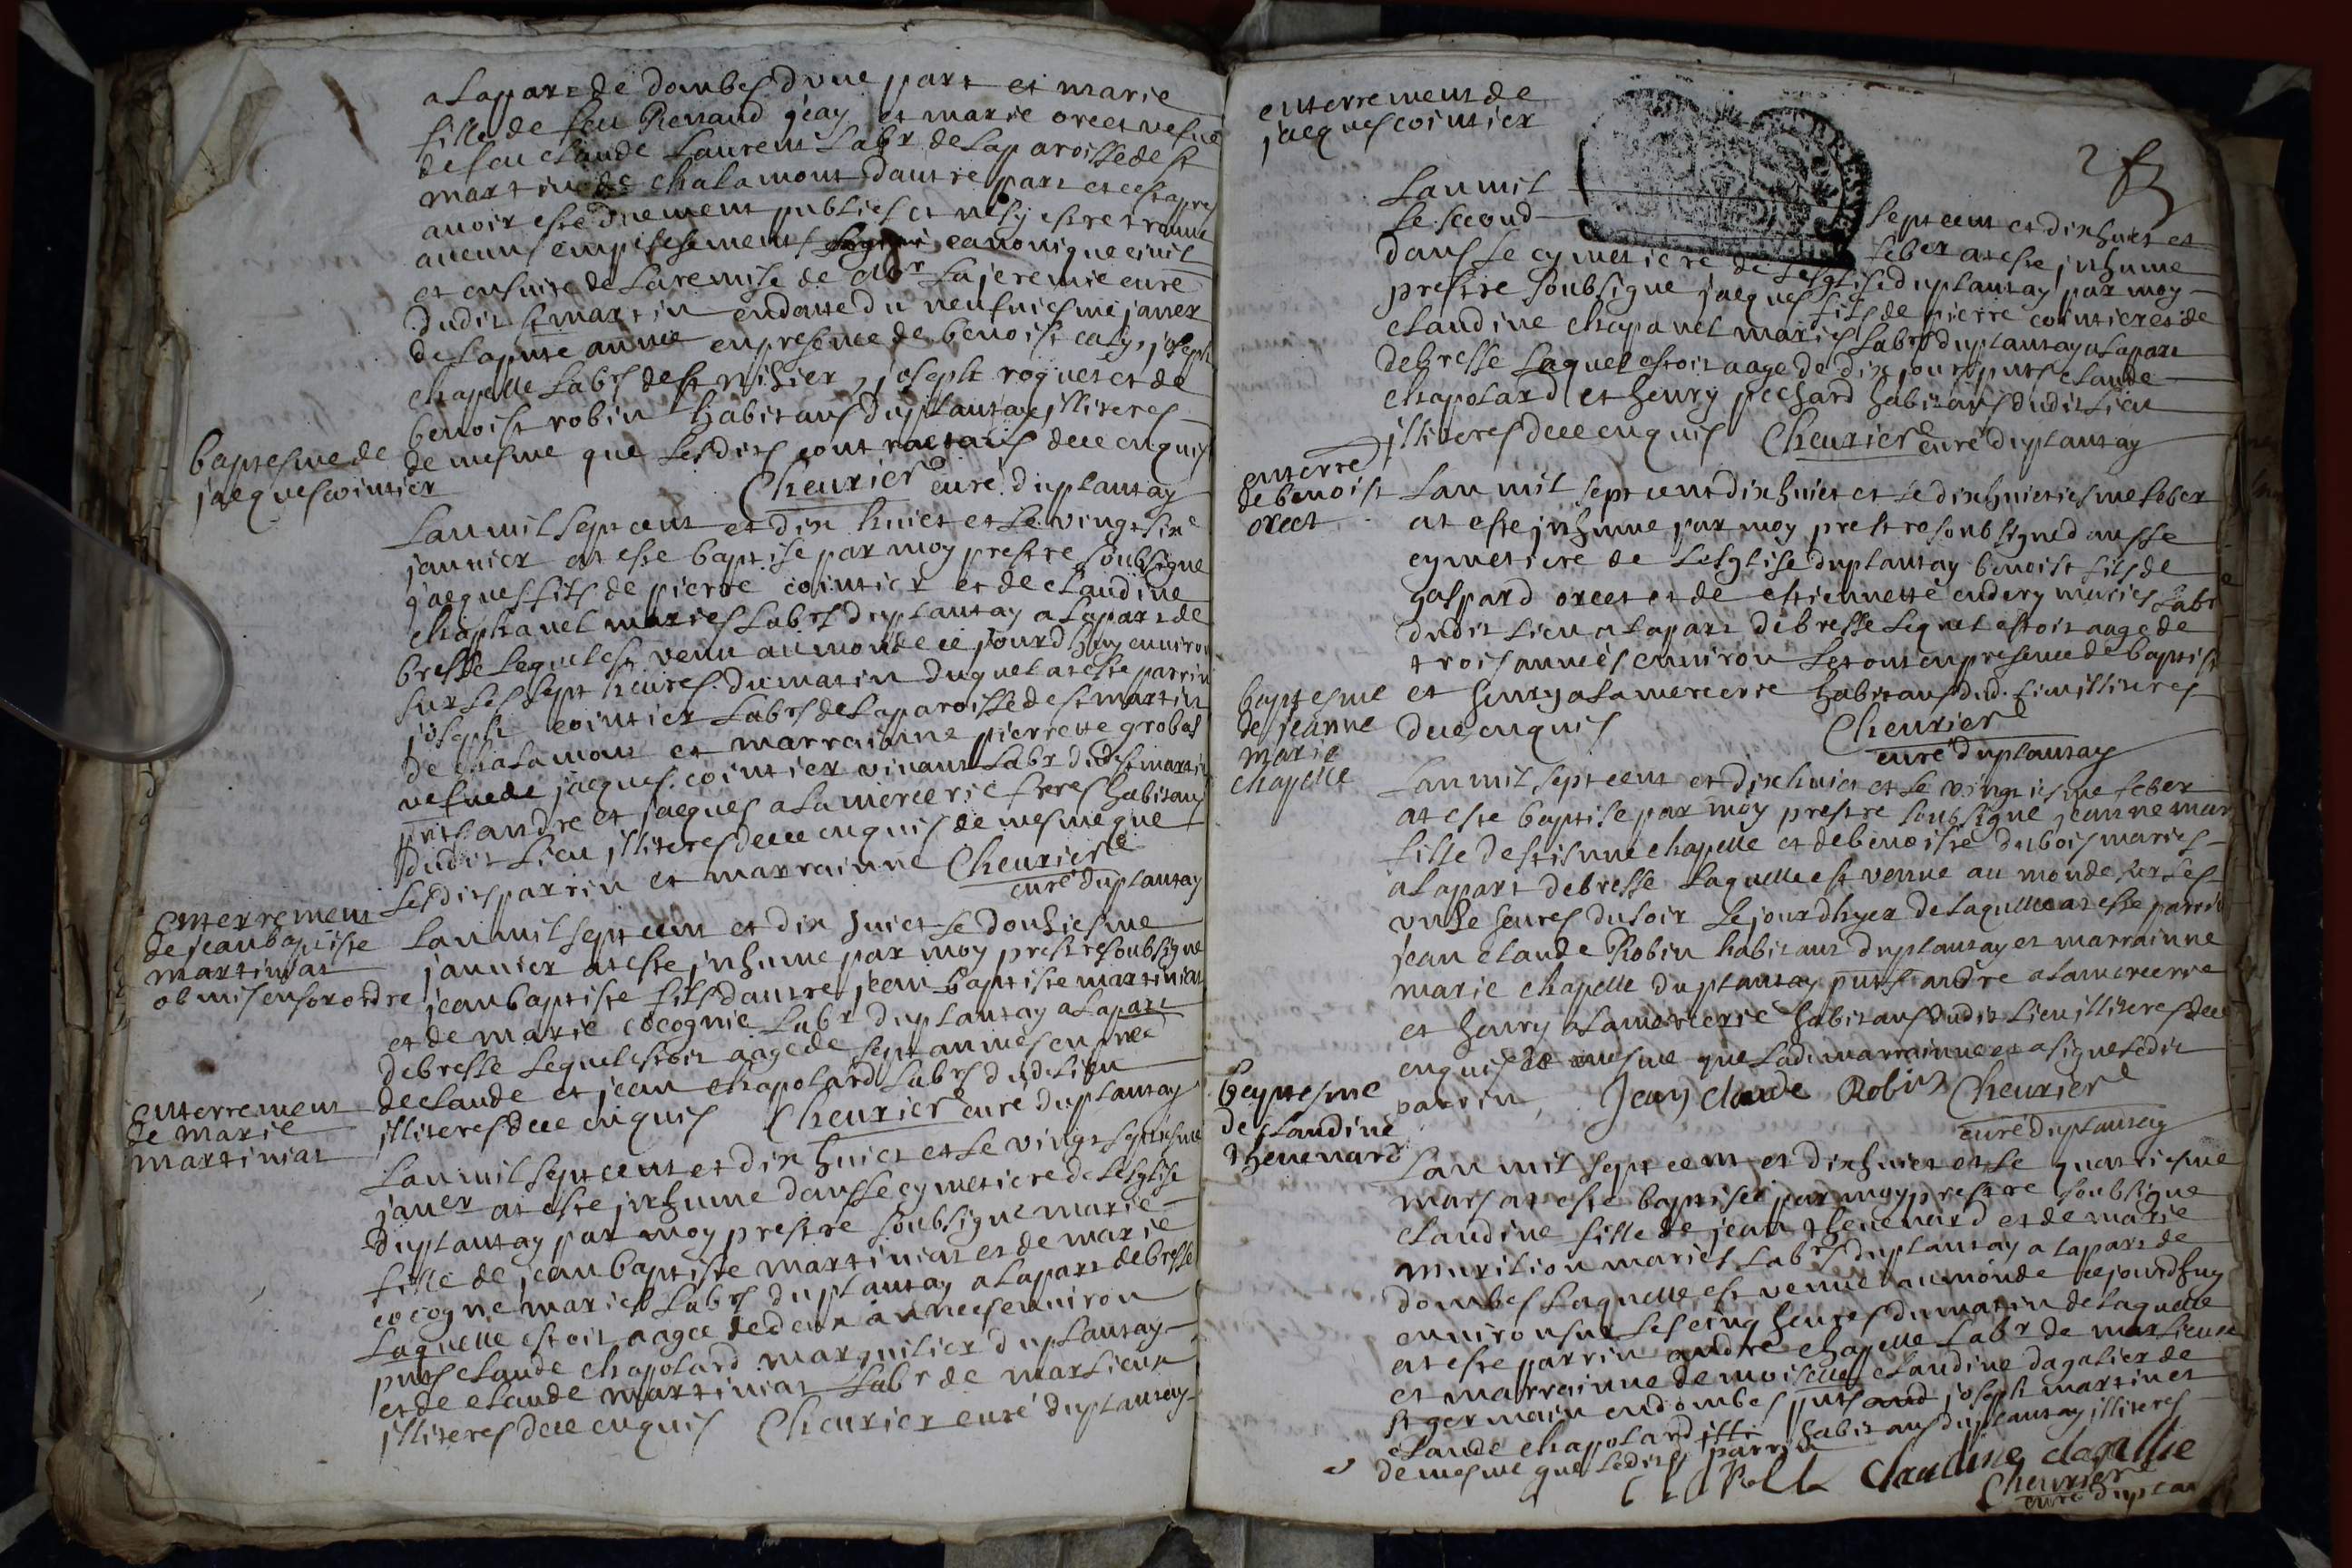 alapart de dombes dune part et marie
fille de feu Renaud jeay et marie orcet vefue
de feu claude Laurent Labr de laparoisse de st
martin de chalamont dautre part et ce apres
auoir esté duement publies et nesy estre trouué
aucuns empeschements canonique ciuil
et ensuite de la remise de Mr Lajeremie curé
dudit st martin en datte du neufuiesme janer
de la pnte année en presence de benoist caly, joseph
chapelle Labrs de st nisier, joseph roguet et de
benoist robin habitans du plantay illiteres
de mesme que lesdits contractans dece enquis
Cheurier curé du plantay
baptesme de
jacques cointier
Lan mil sept cent et dix huict et le vingt sixe
januier at esté baptisé par moy prestre soubsigné
jacques fils de pierre cointier et de claudine
chaphanel mariés Labrs du plantay alapart de
bresse lequel est venu au monde ce jourdhuy enuiron
sur les sept heures du matin duquel at esté parrin
joseph cointier Labrs de laparoisse de st martin
de chalamont et marrainne pierrette grobas
vefue de jacques cointier viuant Labr dudt st martin
pnts andre et jacques alamercerie freres habitans
dudit lieu illiteres dece enquis de mesme que
lesdits parrin et marrainne Cheurier
curé du plantay
enterrement
de jean baptiste
martinias
obmis en son ordre
Lan mil sept cent et dix huict le douhiesme
januier at esté inhumé par moy prestre soubsigné
jean baptiste fils dautre jean baptiste martinias
et de marie cocogne Labr du plantay alapart
de bresse lequel estoit aagé de sept années en pnce
de claude et jean chapolard Labrs dudt lieu
illiteres dece enquis Cheurier curé du plantay
enterrement
de marie
martinias
Lan mil sept cent et dix huict et le vingt septiesme
janer at esté inhumé dans le cymetiere de leglise
du plantay par moy prestre soubsigné marie
fille de jean baptiste martinias et de marie
cocogne mariés Labrs du plantay alapart de bresse
Laquelle estoit aagee de deux années enuiron
pnts claude chapolard marguilier du plantay
et de claude martinias Labr de marlieux
illiteres dece enquis Cheurier curé du plantay
enterrement de
jacques cointier
2 f
Lan mil sept cent et dix huict et
le second feber at esté inhumé
dans le cymetiere de leglise du plantay par moy
prestre soubsigné jacques fils de pierre cointier et de
claudine chapanel mariés Labrs du plantay alapart
de bresse Lequel estoit aagé de dix jours pnts claude
chapolard et henry pechard habitans dudit lieu
illiteres dece enquis Cheurier curé du plantay
enterre
de benoist
orcet
Lan mil sept cent dix huict et le dix huictiesme feber
at esté inhumé par moy prestre soubsigné dans le
cymetiere de leglise du plantay benoist fils de
gaspard orcet et de estiennette endery mariés Labr
dudit lieu alapart de bresse lequel estoit aagé de
trois années enuiron le tout en presence de baptiste
et henry alamercerie habitans dud. lieu illiteres
dece enquis
Cheurier
curé du plantay
baptesme
de jeanne
marie
chapelle
Lan mil sept cent et dix huict et le vingtiesme feber
at esté baptisé par moy prestre soubsigné jeanne mar
fille destienne chapelle et de benoiste dubois mariés
alapart de bresse Laquelle est venue au monde sur les
unse heures du soir le jourdhyer de laquelle at esté parrin
jean claude Robin habitant du plantay et marrainne
marie chapelle du plantay pnts andré alamercerie
et henry alamercerie habitans dudit lieu illiteres dece
enquis de mesme que ladt marrainne et a signé ledit
parrin, Jean claude Robin Cheurier
curé du plantay
baptesme
de claudine
theuenard
Lan mil sept cent et dix huict et le quatriesme
mars at esté baptisée par moy prestre soubsigné
claudine fille de jean theuenard et de marie
murition mariés Labrs du plantay alapart de
dombes Laquelle est venue au monde cejourdhuy
enuiron sur les cinq heures du matin de laquelle
at esté parrin andré chapelle Labr de marlieux
et marrainne demoiselle claudine dagalier de
st germain en dombes pnts joseph martin et
claude chapolard habitans du plantay illiteres
de mesme que ledit parrin
claudine dagallie
Cheurier
curé du plan